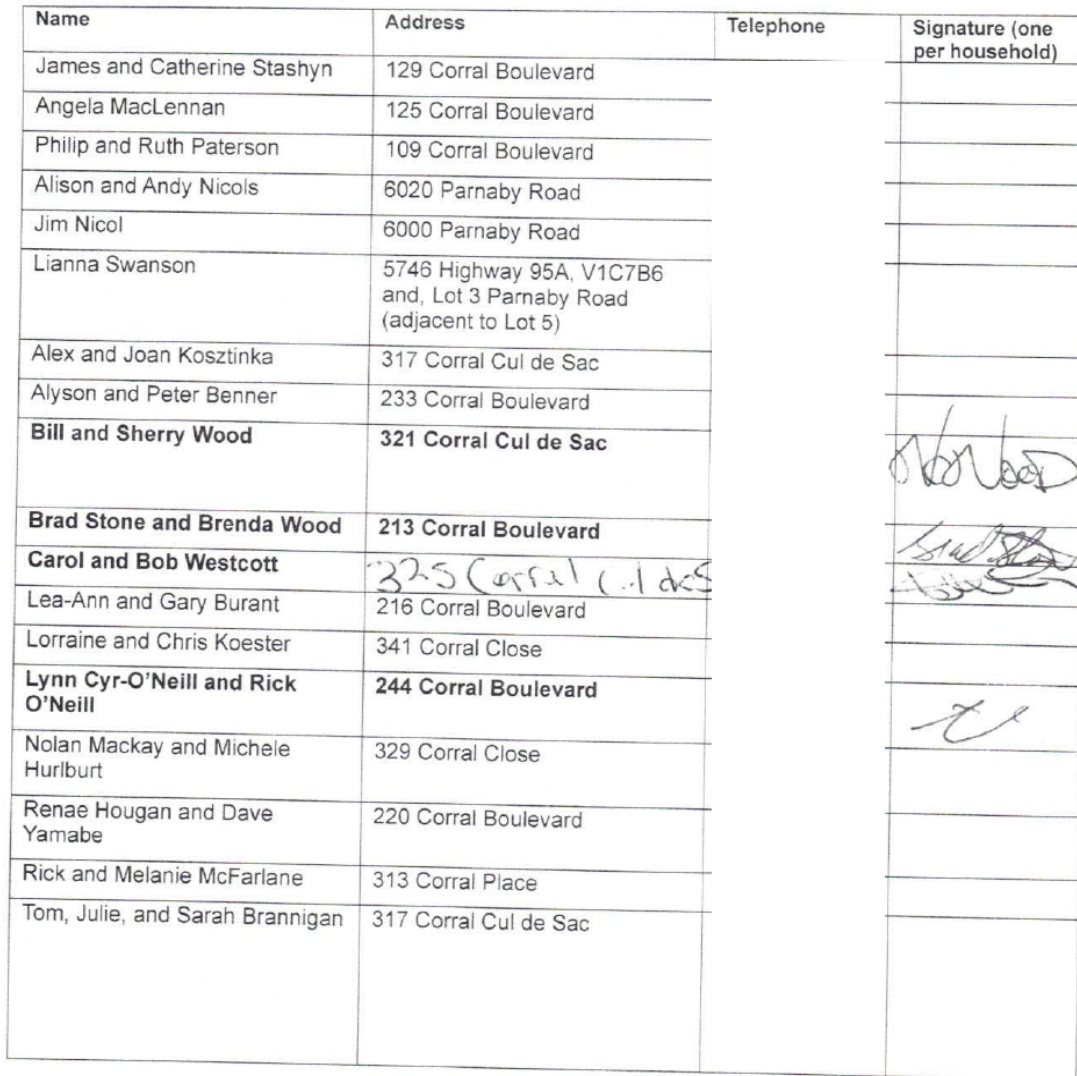 Name Address Telephone Signature (one
per household)
James and Catherine Stashyn 129 Corral Boulevard
Angela MacLennan 125 Corral Boulevard
Philip and Ruth Paterson 109 Corral Boulevard
Alison and Andy Nicols 6020 Parnaby Road
Jim Nicol 6000 Parnaby Road
Lianna Swanson 5746 Highway 95A, V1C7B6
and, Lot 3 Parnaby Road
(adjacent to Lot 5)
Alex and Joan Kosztinka 317 Corral Cul de Sac
Alyson and Peter Benner 233 Corral Boulevard
Bill and Sherry Wood 321 Corral Cul de Sac
Brad Stone and Brenda Wood 213 Corral Boulevard
Carol and Bob Westcott 325 Corral Cul deS
Lea-Ann and Gary Burant 216 Corral Boulevard
Lorraine and Chris Koester 341 Corral Close
Lynn Cyr-O'Neill and Rick 244 Corral Boulevard
O'Neill
Nolan Mackay and Michele 329 Corral Close
Hurlburt
Renae Hougan and Dave 220 Corral Boulevard
Yamabe
Rick and Melanie McFarlane 313 Corral Place
Tom, Julie, and Sarah Brannigan 317 Corral Cul de Sac